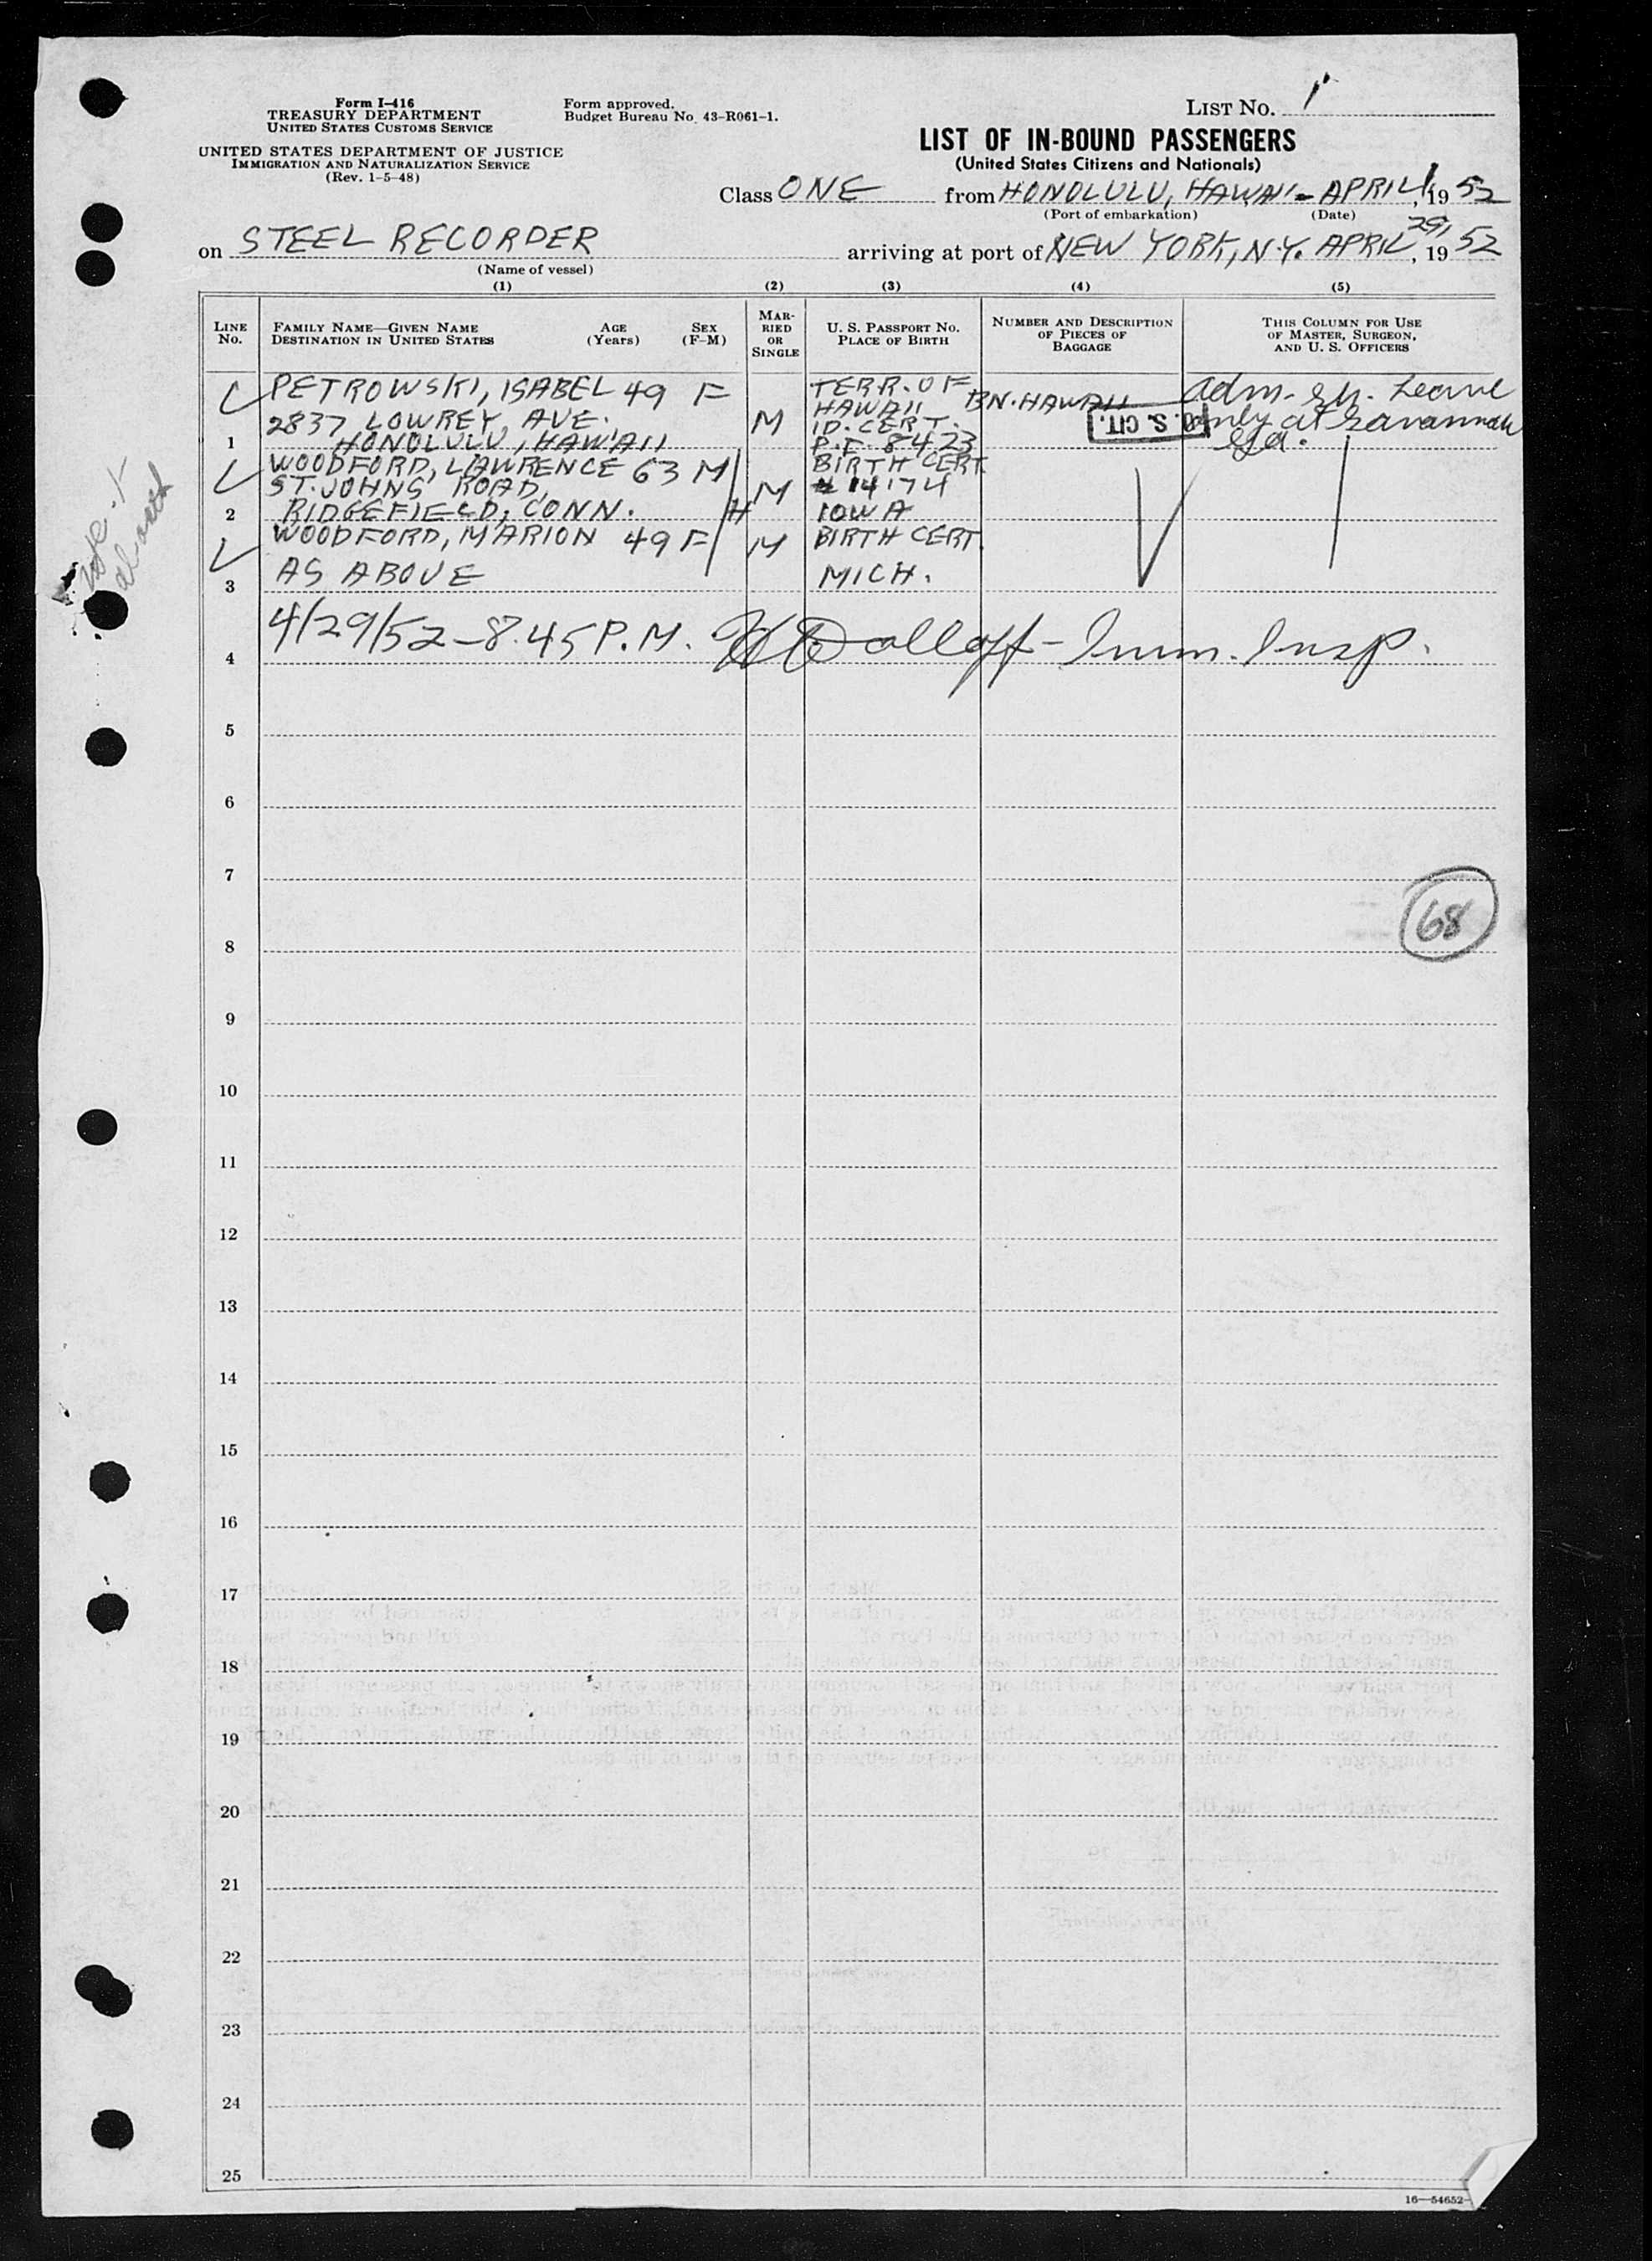 Form I-416
TREASURY DEPARTMENT
UNITED STATES CUSTOMS SERVICE
UNITED STATES DEPARTMENT OF JUSTICE
IMMIGRATION AND NATURALIZATION SERVICE
(Rev. 1-5-48)
Form approved.
Budget Bureau No. 43-R061-1.
LIST NO. 1
LIST OF IN-BOUND PASSENGERS
(United States Citizens and Nationals)
Class ONE from HONOLULU, HAWAII - APRIL 1, 19 52
(Port of embarkation) (Date)
on STEEL RECORDER arriving at port of NEW YORK, N.Y. APRIL 29, 19 52
(Name of vessel)
(1) (2) (3) (4) (5)
LINE No.
FAMILY NAME—GIVEN NAME
DESTINATION IN UNITED STATES
AGE
(Years)
SEX
(F-M)
MAR-
RIED
OR
SINGLE
U. S. PASSPORT NO.
PLACE OF BIRTH
NUMBER AND DESCRIPTION
OF PIECES OF
BAGGAGE
THIS COLUMN FOR USE
OF MASTER, SURGEON,
AND U. S. OFFICERS
PETROWSKI, ISABEL 49 F
2837 LOWREY AVE.
1 HONOLULU, HAWAII
M
TERR. OF
HAWAII
ID. CERT.
P.E. 8423
BN. HAWAII
U. S. CIT.
Adm. Leave
only at Savannah
Ga.
WOODFORD, LAWRENCE 63 M
ST. JOHNS ROAD,
2 RIDGEFIELD, CONN.
M
BIRTH CERT
# 14174
IOWA
WOODFORD, MARION 49 F
3 AS ABOVE
M
BIRTH CERT.
MICH.
4 4/29/52 - 8.45 P.M. - Imm. Insp.
5
6
7
68
8
9
10
11
12
13
14
15
16
17
18
19
20
21
22
23
24
25
16—54652-